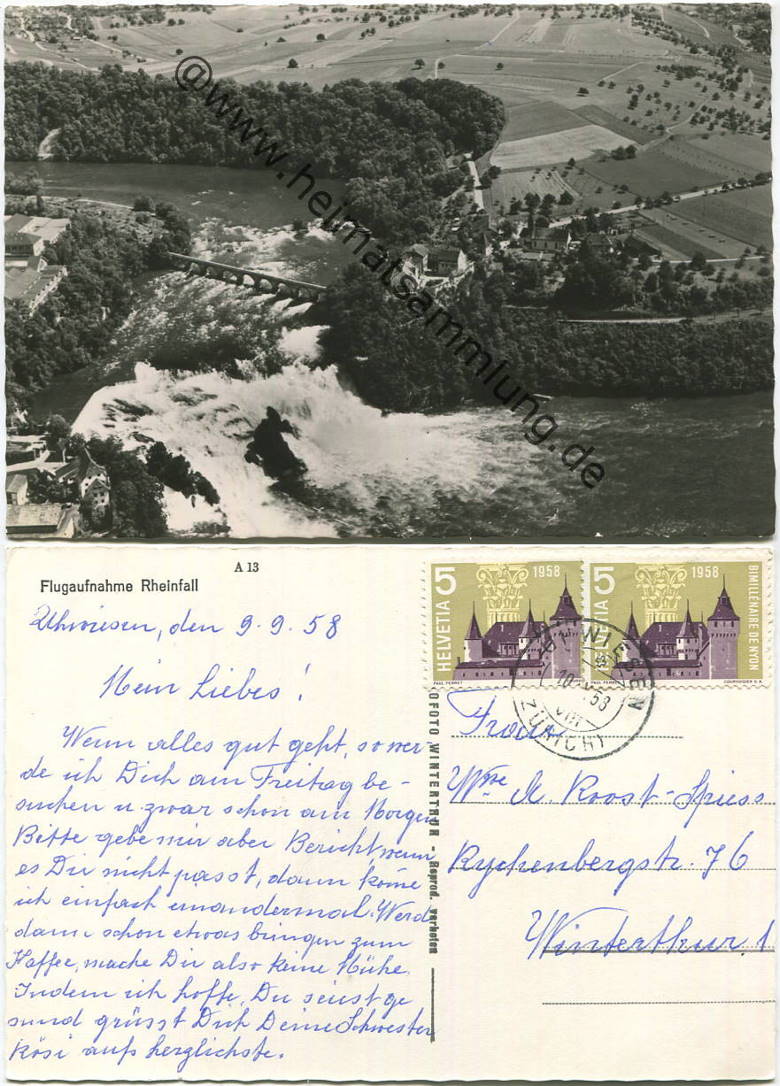 @www.heimatsammlung.de
A 13
Flugaufnahme Rheinfall
Uhwiesen, den 9.9.58
Mein Liebes!
Wenn alles gut geht, so wer-
de ich Dich am Freitag be-
suchen u. zwar schon am Morgen
Bitte gebe mir aber Bericht, wenn
es Dir nicht passt, dann kome
ich einfach einandermal. Werde
dann schon etwas bringen zum
Kaffee, mache Dir also keine Mühe.
Indem ich hoffe, Du seiest ge
sund grüsst Dich Deine Schwester
Rösi aufs herzlichste.
OFOTO WINTERTHUR - Reprod. verboten
5 1958
HELVETIA
PAUL PERRET
5 1958
HELVETIA
BIMILLÉNAIRE DE NYON
PAUL PERRET COURVOISIER S.A.
UHWIESEN
(ZÜRICH)
Frau
Wwe M. Roost-Spiess
Rychenbergstr. 76
Winterthur 1